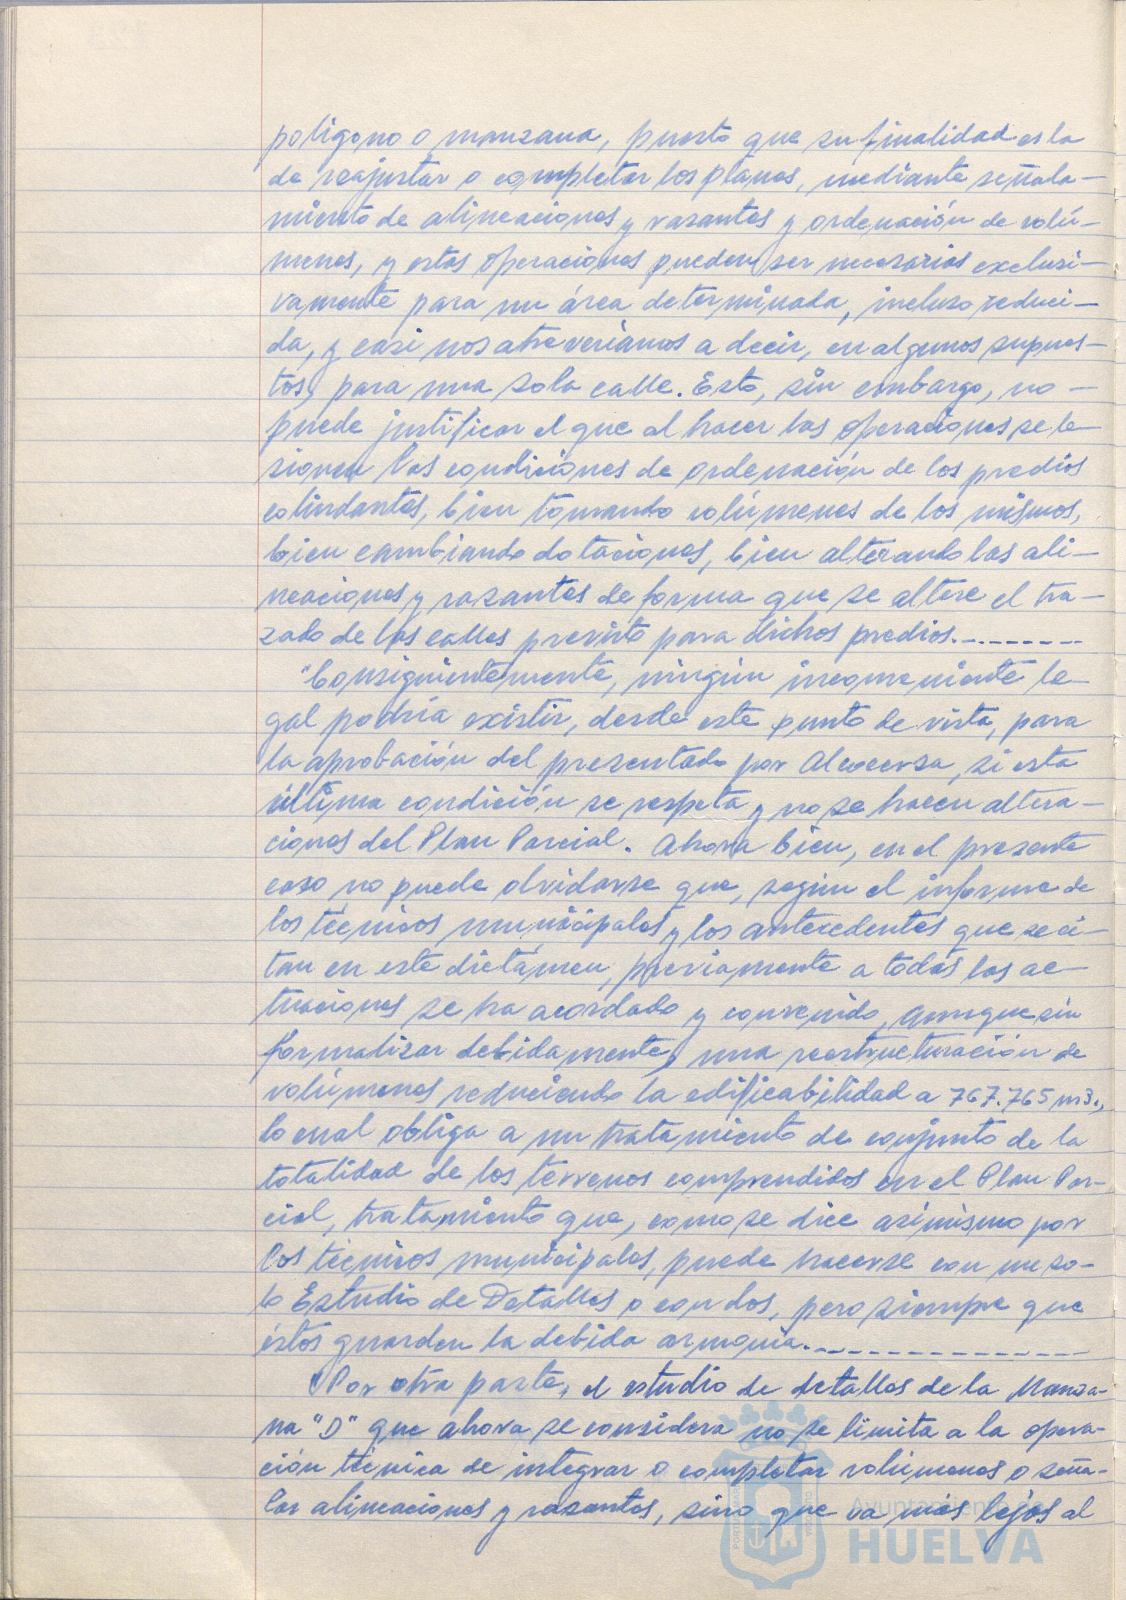 polígono o manzana, puesto que su finalidad es la
de reajustar o completar los planes, mediante señala-
miento de alineaciones y rasantes y ordenación de volú-
menes, y estas operaciones pueden ser necesarias exclusi-
vamente para un área determinada, incluso reduci-
da, y casi nos atreveríamos a decir, en algunos supues-
tos, para una sola calle. Esto, sin embargo, no -
puede justificar el que al hacer las operaciones se le-
sionen las condiciones de ordenación de los predios
colindantes, bien tomando volúmenes de los mismos,
bien cambiando dotaciones, bien alterando las ali-
neaciones y rasantes de forma que se altere el tra-
zado de las calles previsto para dichos predios.--------
"Consiguientemente, ningún inconveniente le-
gal podría existir, desde este punto de vista, para
la aprobación del presentado por Alcocersa, si esta
última condición se respeta y no se hacen altera-
ciones del Plan Parcial. Ahora bien, en el presente
caso no puede olvidarse que, según el informe de
los técnicos municipales y los antecedentes que se ci-
tan en este dictámen, previamente a todas las ac-
tuaciones se ha acordado y convenido, aunque sin
formalizar debidamente, una reestructuración de
volúmenes reduciendo la edificabilidad a 767.765 m3.,
lo cual obliga a un tratamiento de conjunto de la
totalidad de los terrenos comprendidos en el Plan Par-
cial, tratamiento que, como se dice asimismo por
los técnicos municipales, puede hacerse con un so-
lo Estudio de Detalles o con dos, pero siempre que
éstos guarden la debida armonía.----------------
"Por otra parte, el estudio de detalles de la Manza-
na "D" que ahora se considera no se limita a la opera-
ción técnica de integrar o completar volúmenes o seña-
lar alineaciones y rasantes, sino que va más lejos al
Ayuntamiento de
HUELVA